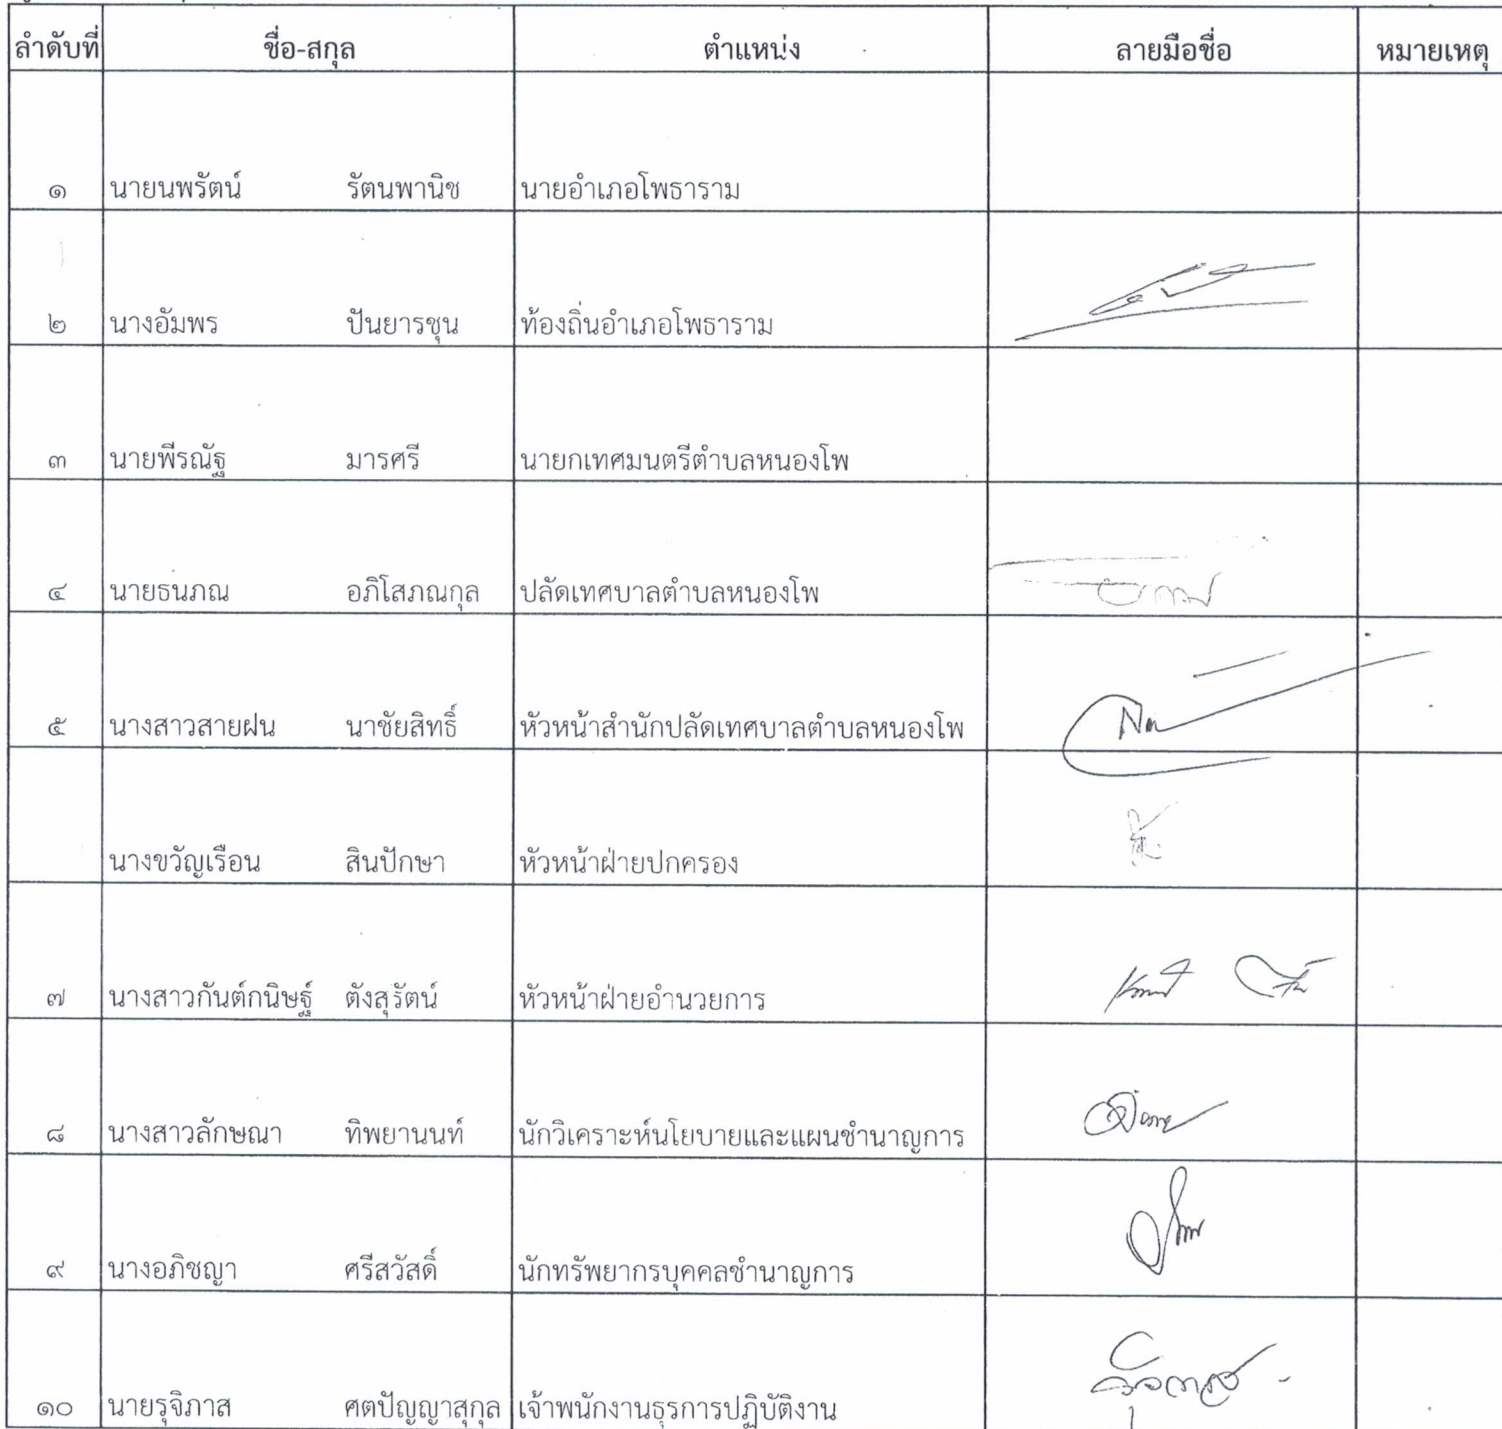 ลำดับที่ ชื่อ-สกุล ตำแหน่ง ลายมือชื่อ หมายเหตุ
๑ นายนพรัตน์ รัตนพานิช นายอำเภอโพธาราม
๒ นางอัมพร ปันยารชุน ท้องถิ่นอำเภอโพธาราม
๓ นายพีรณัฐ มารศรี นายกเทศมนตรีตำบลหนองโพ
๔ นายธนภณ อภิโสภณกุล ปลัดเทศบาลตำบลหนองโพ
๕ นางสาวสายฝน นาชัยสิทธิ์ หัวหน้าสำนักปลัดเทศบาลตำบลหนองโพ
นางขวัญเรือน สินปักษา หัวหน้าฝ่ายปกครอง
๗ นางสาวกันต์กนิษฐ์ ตังสุรัตน์ หัวหน้าฝ่ายอำนวยการ
๘ นางสาวลักษณา ทิพยานนท์ นักวิเคราะห์นโยบายและแผนชำนาญการ
๙ นางอภิชญา ศรีสวัสดิ์ นักทรัพยากรบุคคลชำนาญการ
๑๐ นายรุจิภาส ศตปัญญาสุกุล เจ้าพนักงานธุรการปฏิบัติงาน